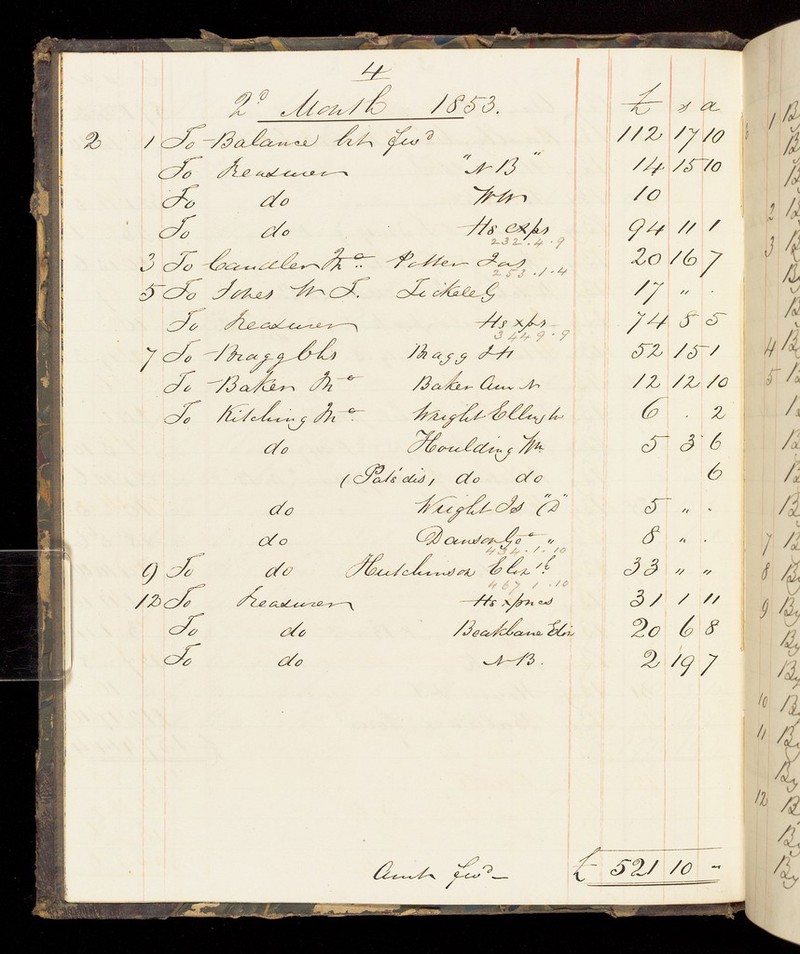 4
2d Month 1853. £ s d
2 1 To Balance bt fwd 112 17 10
To Treasurer "NB" 14 15 10
To do WW 10
To do Hs Exps 94 11 1
232.4.9
3 To Candler Potter Jas 20 16 7
253.1.4
5 To Jones W T. 17 " .
To Treasurer Hs xps 74 8 5
344 9.9
7 To Bragg Chs Bragg 52 15 1
To Baker Baker Ann N 12 12 10
To Kitching Wright 6 . 2
do Houlding Wm 5 3 6
do do 6
do Wright Is "D" 5 " .
do Danson 8 " .
434.1.10
9 To do Hutchinson Elizth 33 " "
467 1.10
12 To Treasurer Hs xpnes 31 1 11
To do Beakbane Edw 20 6 8
To do NB. 2 19 7
Amt fwd £ 521 10 -
1
2
3
4
5
7
8
9 By
10
11
12